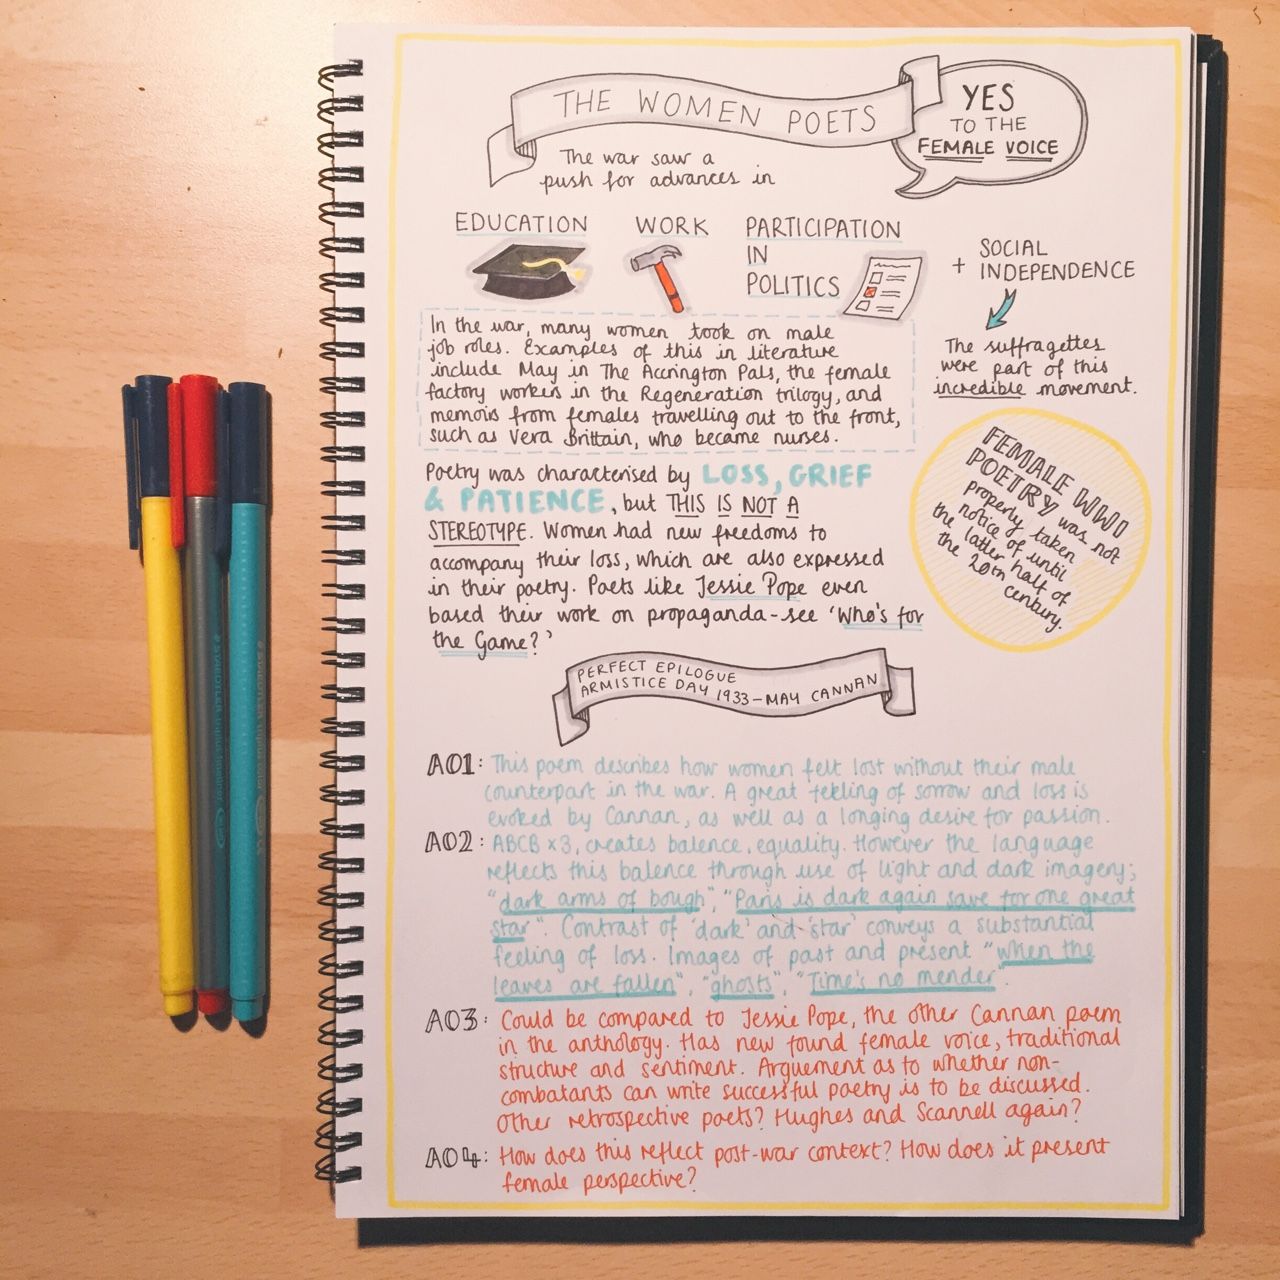 THE WOMEN POETS
YES
TO THE
FEMALE VOICE
The war saw a
push for advances in
EDUCATION
WORK
PARTICIPATION
IN
POLITICS
+ SOCIAL
INDEPENDENCE
The suffragettes
were part of this
incredible movement.
In the war, many women took on male
job roles. Examples of this in literature
include May in The Accrington Pals, the female
factory workers in the Regeneration trilogy, and
memoirs from females travelling out to the front,
such as Vera Brittain, who became nurses.
FEMALE WWI
POETRY was not
properly taken
notice of until
the latter half of
the 20th century.
Poetry was characterised by LOSS, GRIEF
& PATIENCE, but THIS IS NOT A
STEREOTYPE. Women had new freedoms to
accompany their loss, which are also expressed
in their poetry. Poets like Jessie Pope even
based their work on propaganda - see 'Who's for
the Game?'
PERFECT EPILOGUE
ARMISTICE DAY 1933 - MAY CANNAN
AO1: This poem describes how women felt lost without their male
counterpart in the war. A great feeling of sorrow and loss is
evoked by Cannan, as well as a longing desire for passion.
AO2: ABCB x3, creates balence, equality. However the language
reflects this balence through use of light and dark imagery;
"dark arms of bough", "Paris is dark again save for one great
star". Contrast of 'dark' and 'star' conveys a substantial
feeling of loss. Images of past and present "when the
leaves are fallen", "ghosts", "Time's no mender".
AO3: Could be compared to Jessie Pope, the other Cannan poem
in the anthology. Has new found female voice, traditional
structure and sentiment. Arguement as to whether non-
combatants can write successful poetry is to be discussed.
Other retrospective poets? Hughes and Scannell again?
AO4: How does this reflect post-war context? How does it present
female perspective?
STAEDTLER
STAEDTLER